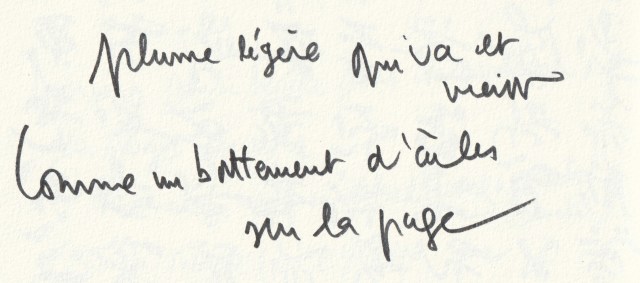 plume légère qui va et
vient
Comme un battement d'ailes
sur la page